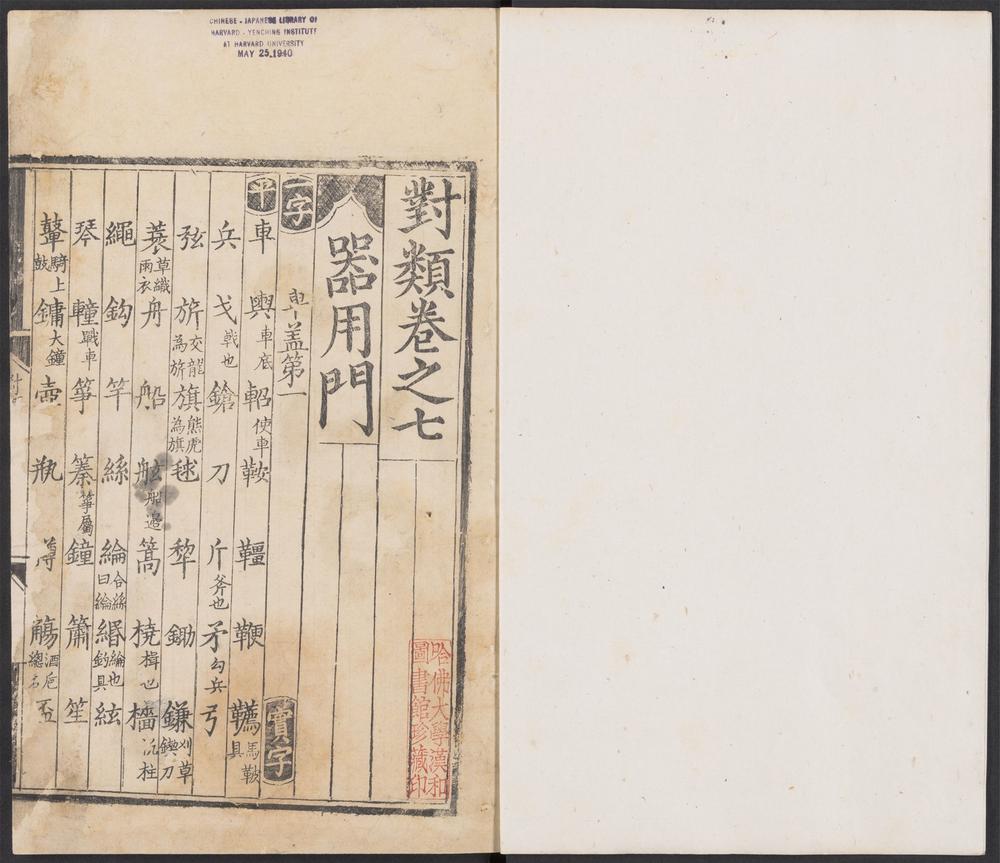 CHINESE - JAPANESE LIBRARY OF
HARVARD - YENCHING INSTITUTE
AT HARVARD UNIVERSITY
MAY 25, 1940
對類卷之七
器用門
一字 車盖第一
平 實字
車 輿車底 軺使車 鞍 韁 鞭 韉馬鞍具
兵 戈戟也 鎗 刀 斤斧也 矛勾兵 弓
弦 旂交龍為旂 旗熊虎為旗 毬 犂 鋤 鎌刈草鍥刀
蓑草織雨衣 舟 船 舷船邉 篙 橈楫也 檣汎柱
繩 鈎 竿 絲 綸合絲曰綸 緡綸也釣具 絃
琴 轒戰車 箏 篥箏屬 鐘 簫 笙
鼙騎上鼓 鏞大鐘 壺 瓶 罇 觴酒巵總名 盃
哈佛大學漢和
圖書館珍藏印